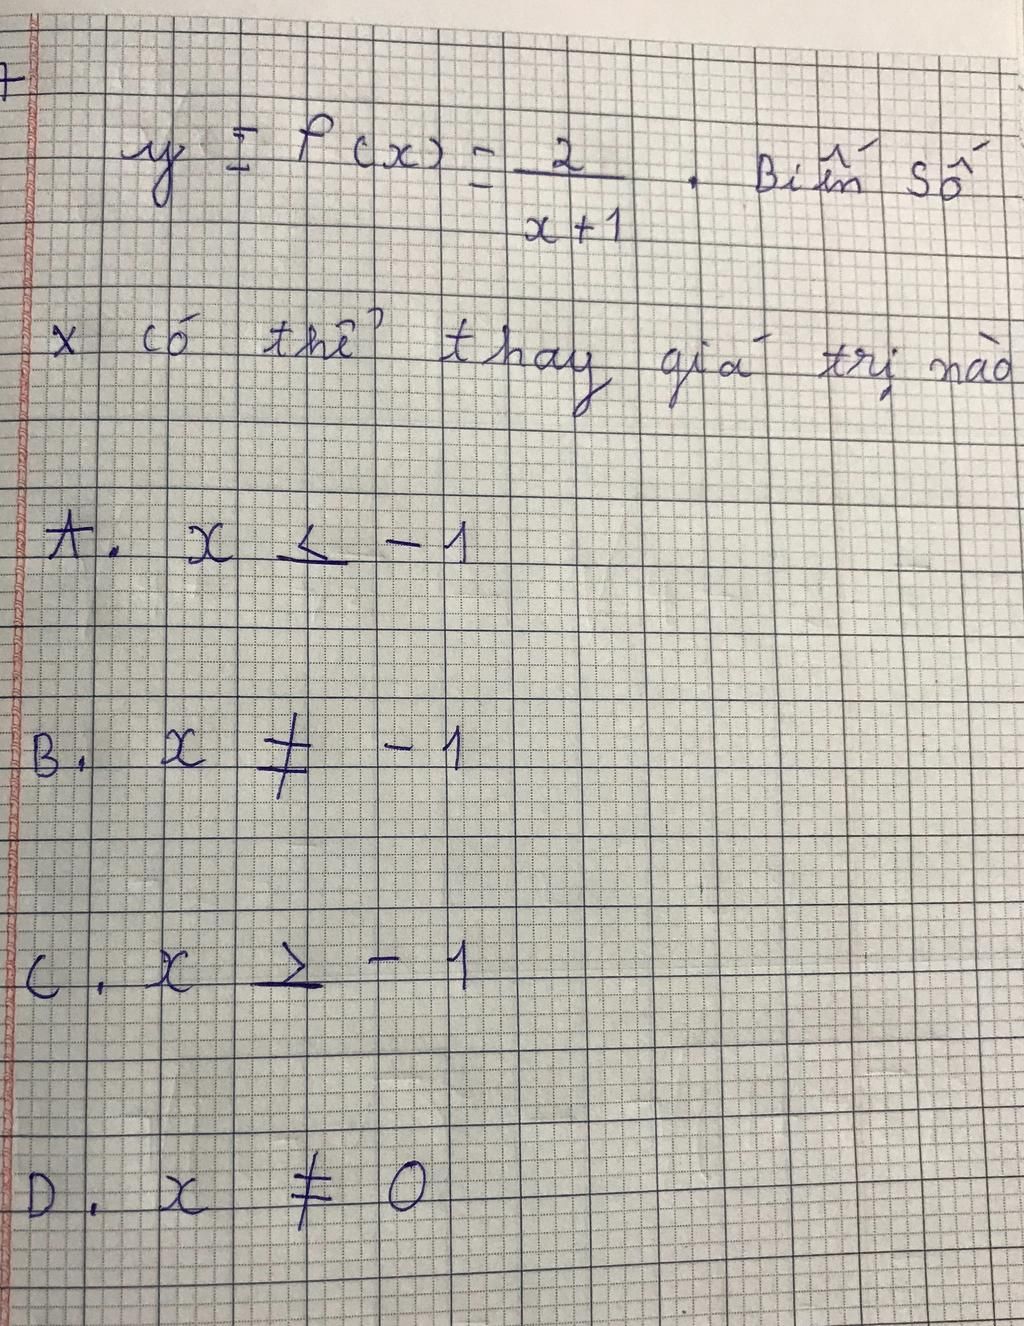 7
y = f(x) = 2/(x+1) . Biến số
x có thể thay giá trị nào
A. x ≤ -1
B. x ≠ -1
C. x ≥ -1
D. x ≠ 0